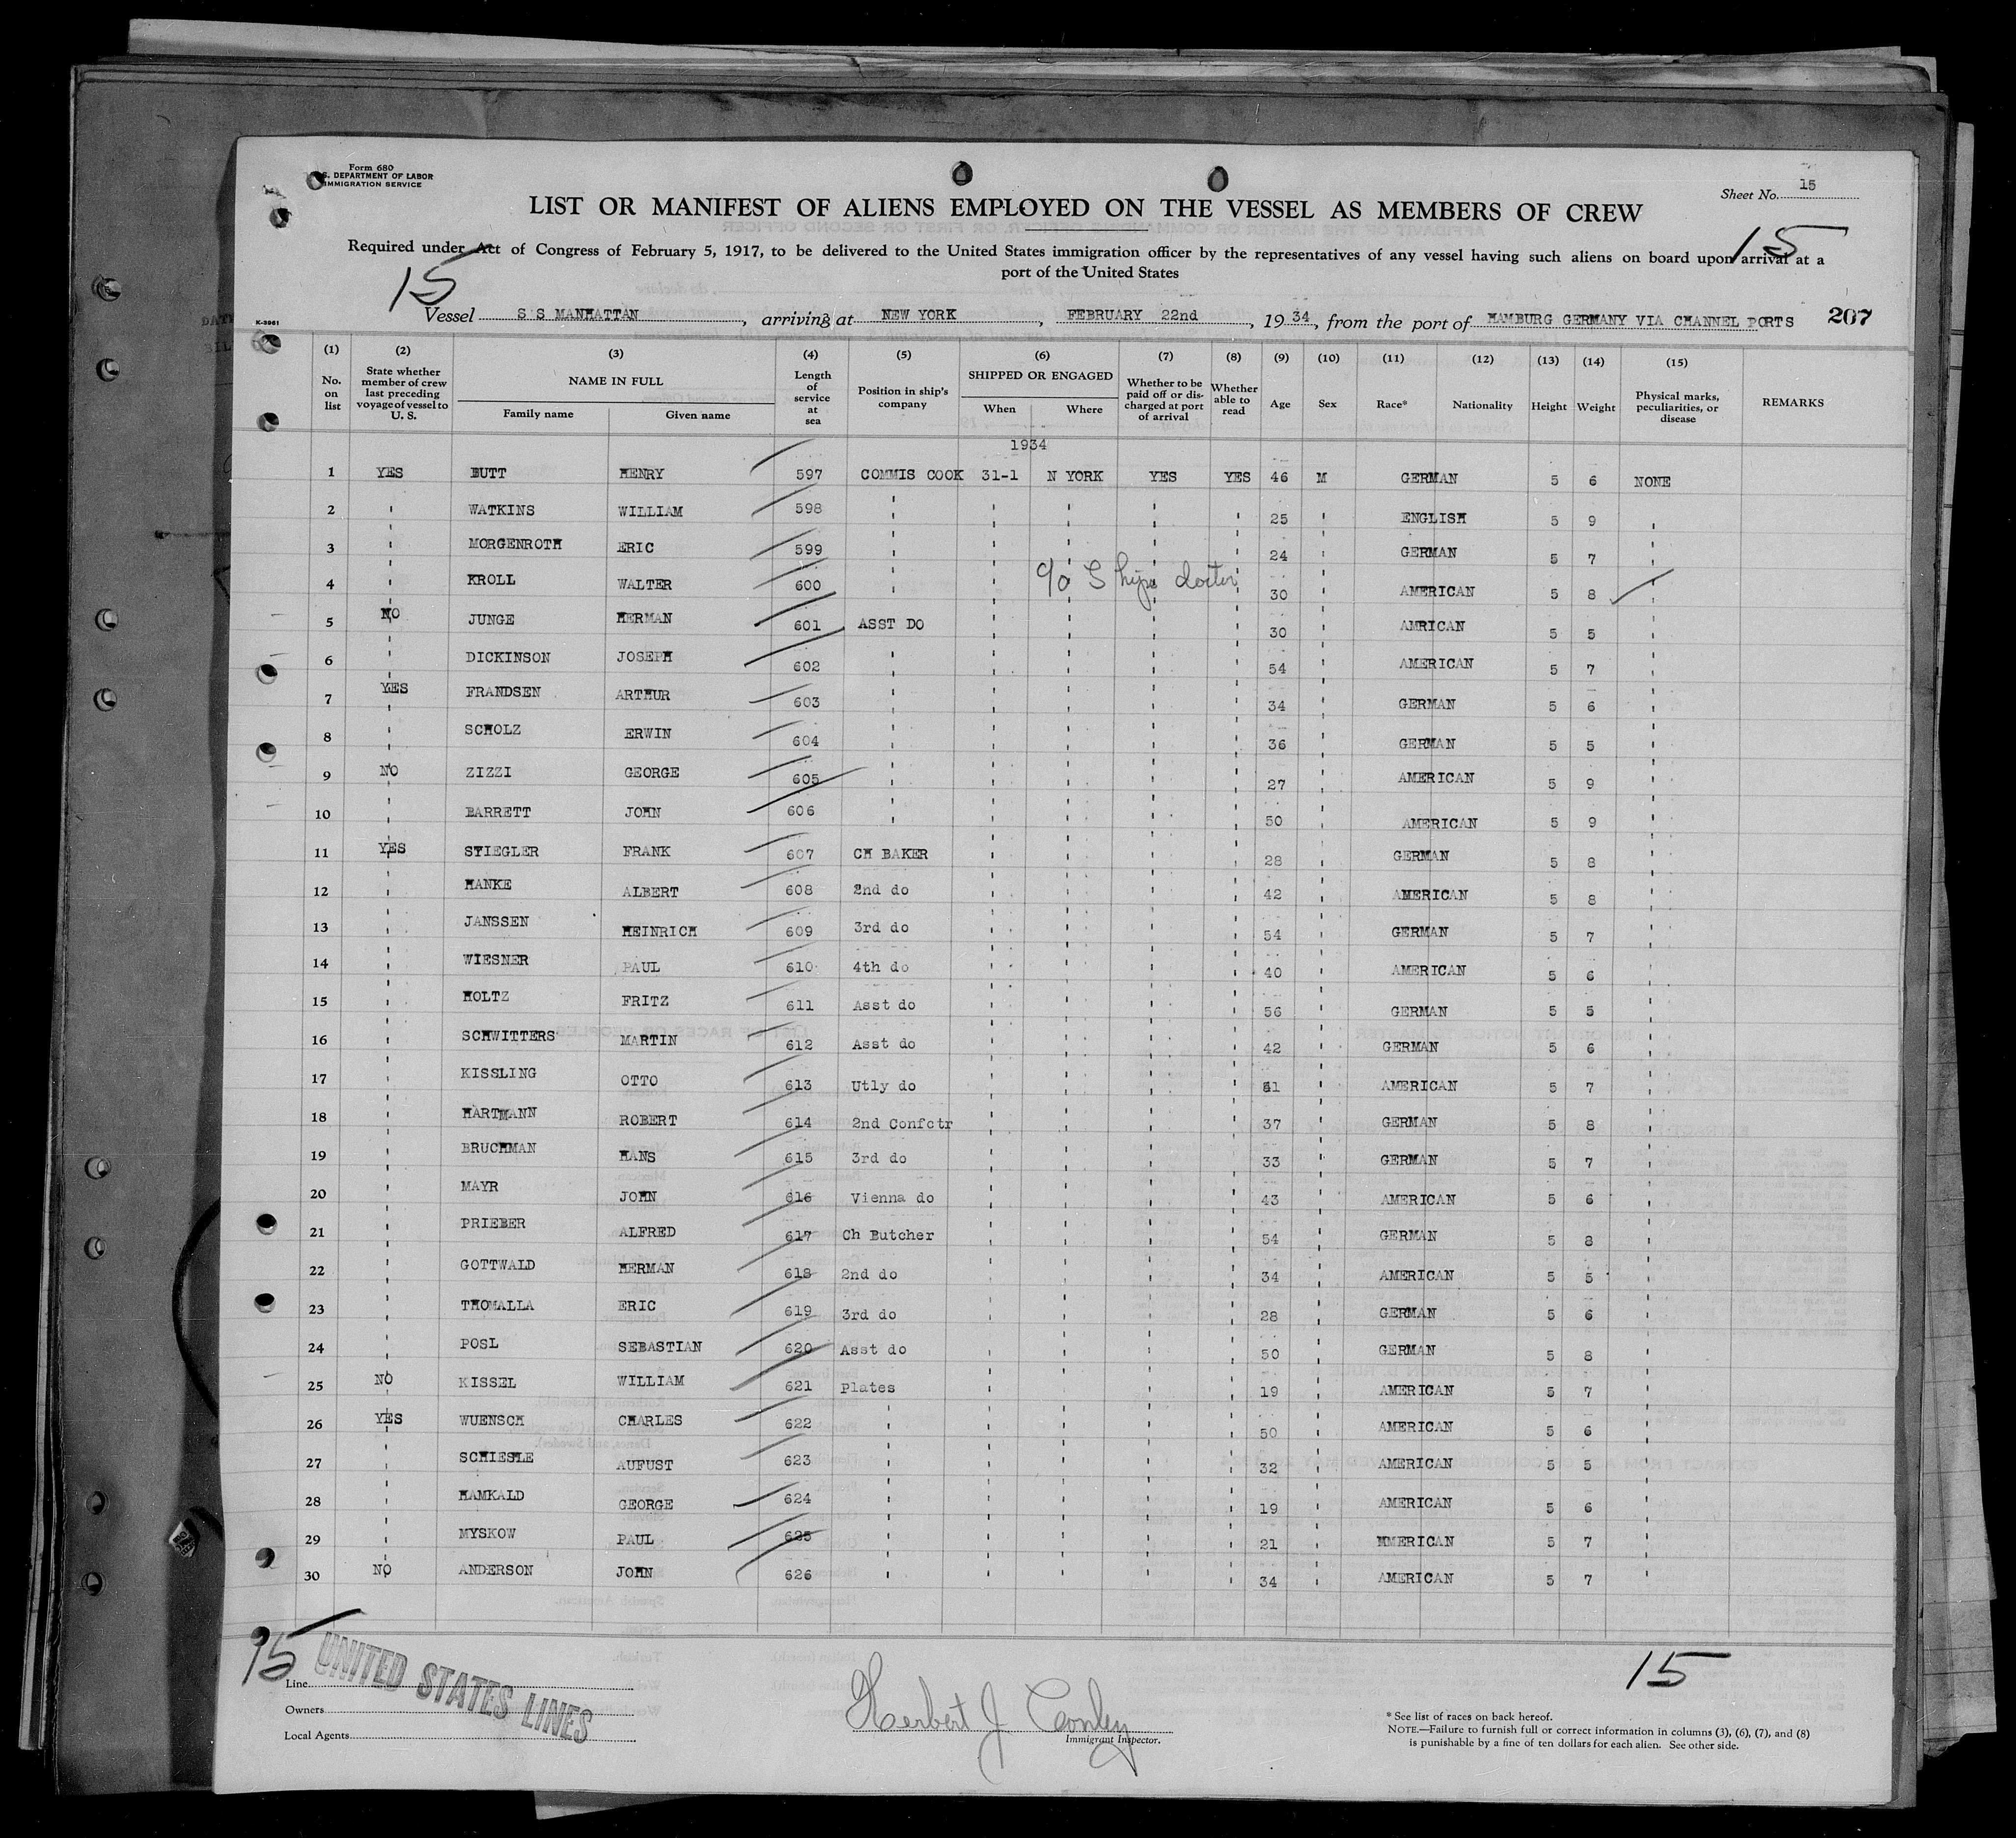 Form 680
S. DEPARTMENT OF LABOR
IMMIGRATION SERVICE
Sheet No. 15
LIST OR MANIFEST OF ALIENS EMPLOYED ON THE VESSEL AS MEMBERS OF CREW
Required under Act of Congress of February 5, 1917, to be delivered to the United States immigration officer by the representatives of any vessel having such aliens on board upon arrival at a
port of the United States
15 15
Vessel S S MANHATTAN, arriving at NEW YORK, FEBRUARY 22nd, 1934, from the port of HAMBURG GERMANY VIA CHANNEL PORTS 207
K-3961
(1) No. on list (2) State whether member of crew last preceding voyage of vessel to U. S. (3) NAME IN FULL Family name Given name (4) Length of service at sea (5) Position in ship's company (6) SHIPPED OR ENGAGED When Where (7) Whether to be paid off or discharged at port of arrival (8) Whether able to read (9) Age (10) Sex (11) Race* (12) Nationality (13) Height (14) Weight (15) Physical marks, peculiarities, or disease REMARKS
1934
1 YES BUTT HENRY 597 COMMIS COOK 31-1 N YORK YES YES 46 M GERMAN 5 6 NONE
2 " WATKINS WILLIAM 598 " " " " " 25 " ENGLISH 5 9 "
3 " MORGENROTH ERIC 599 " " " " " 24 " GERMAN 5 7 "
c/o Ships doctor
4 " KROLL WALTER 600 " " " " " 30 " AMERICAN 5 8 "
5 NO JUNGE HERMAN 601 ASST DO " " " " 30 " AMRICAN 5 5 "
6 " DICKINSON JOSEPH 602 " " " " " 54 " AMERICAN 5 7 "
7 YES FRANDSEN ARTHUR 603 " " " " " 34 " GERMAN 5 6 "
8 " SCHOLZ ERWIN 604 " " " " " 36 " GERMAN 5 5 "
9 NO ZIZZI GEORGE 605 " " " " " 27 " AMERICAN 5 9 "
10 " BARRETT JOHN 606 " " " " " 50 " AMERICAN 5 9 "
11 YES STIEGLER FRANK 607 CH BAKER " " " " 28 " GERMAN 5 8 "
12 " HANKE ALBERT 608 2nd do " " " " 42 " AMERICAN 5 8 "
13 " JANSSEN HEINRICH 609 3rd do " " " " 54 " GERMAN 5 7 "
14 " WIESNER PAUL 610 4th do " " " " 40 " AMERICAN 5 6 "
15 " HOLTZ FRITZ 611 Asst do " " " " 56 " GERMAN 5 5 "
16 " SCHWITTERS MARTIN 612 Asst do " " " " 42 " GERMAN 5 6 "
17 " KISSLING OTTO 613 Utly do " " " " " AMERICAN 5 7 "
18 " HARTMANN ROBERT 614 2nd Confctr " " " " 37 " GERMAN 5 8 "
19 " BRUCHMAN HANS 615 3rd do " " " " 33 " GERMAN 5 7 "
20 " MAYR JOHN 616 Vienna do " " " " 43 " AMERICAN 5 6 "
21 " PRIEBER ALFRED 617 Ch Butcher " " " " 54 " GERMAN 5 8 "
22 " GOTTWALD HERMAN 618 2nd do " " " " 34 " AMERICAN 5 5 "
23 " THOMALLA ERIC 619 3rd do " " " " 28 " GERMAN 5 6 "
24 " POSL SEBASTIAN 620 Asst do " " " " 50 " GERMAN 5 8 "
25 NO KISSEL WILLIAM 621 Plates " " " " 19 " AMERICAN 5 7 "
26 YES WUENSCH CHARLES 622 " " " " " 50 " AMERICAN 5 6 "
27 " SCHIESLE AUFUST 623 " " " " " 32 " AMERICAN 5 5 "
28 " HAMKALD GEORGE 624 " " " " " 19 " AMERICAN 5 6 "
29 " MYSKOW PAUL 625 " " " " " 21 " MMERICAN 5 7 "
30 NO ANDERSON JOHN 626 " " " " " 34 " AMERICAN 5 7 "
15 15
UNITED STATES LINES
Line
Owners
Local Agents
Herbert J Conley
Immigrant Inspector.
* See list of races on back hereof.
NOTE.—Failure to furnish full or correct information in columns (3), (6), (7), and (8)
is punishable by a fine of ten dollars for each alien. See other side.